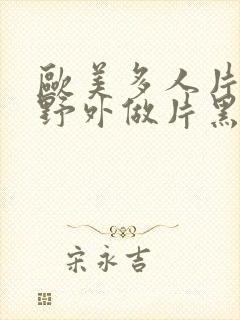 歐美多人片
野外做片黑
宋永吉